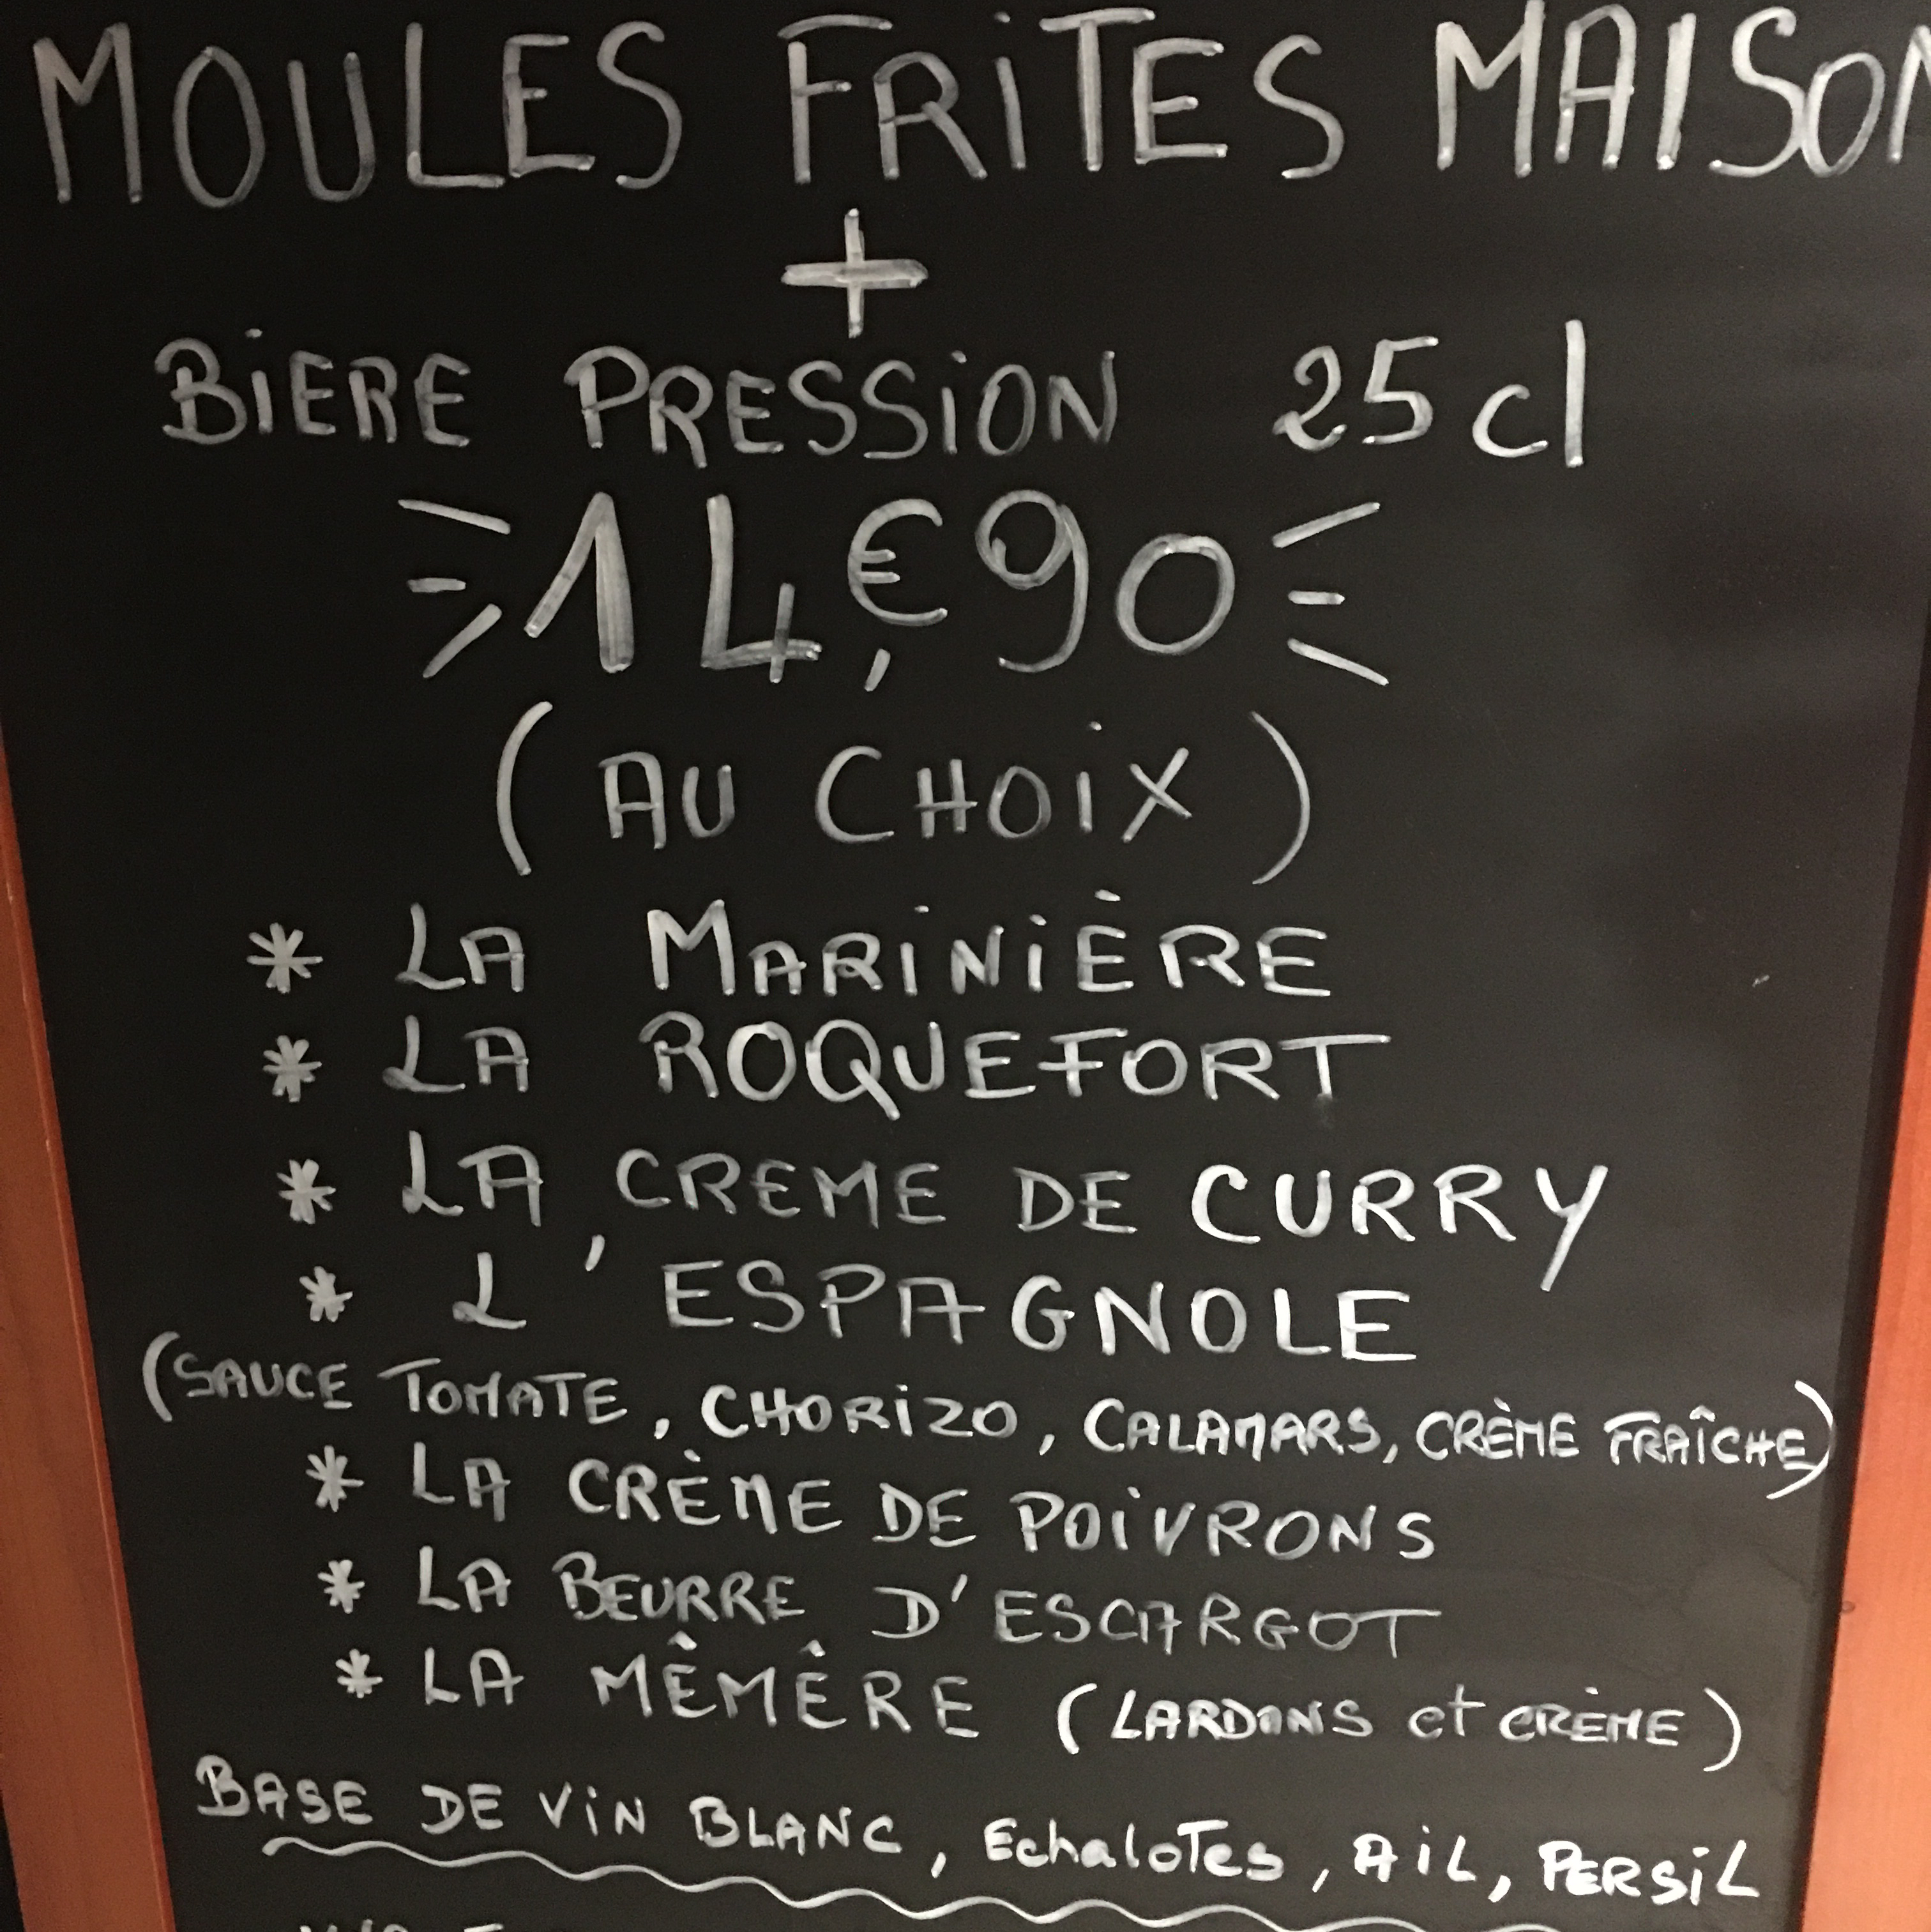 MOULES FRITES MAISON
+
BIERE PRESSION 25 cl
14,€90
(AU CHOIX)
* LA MARINIÈRE
* LA ROQUEFORT
* LA CREME DE CURRY
* L'ESPAGNOLE
(SAUCE TOMATE, CHORIZO, CALAMARS, CRÈME FRAÎCHE)
* LA CRÈME DE POIVRONS
* LA BEURRE D'ESCARGOT
* LA MÊMÊRE (LARDONS et CRÈME)
BASE DE VIN BLANC, EchaloTes, AIL, PERSIL